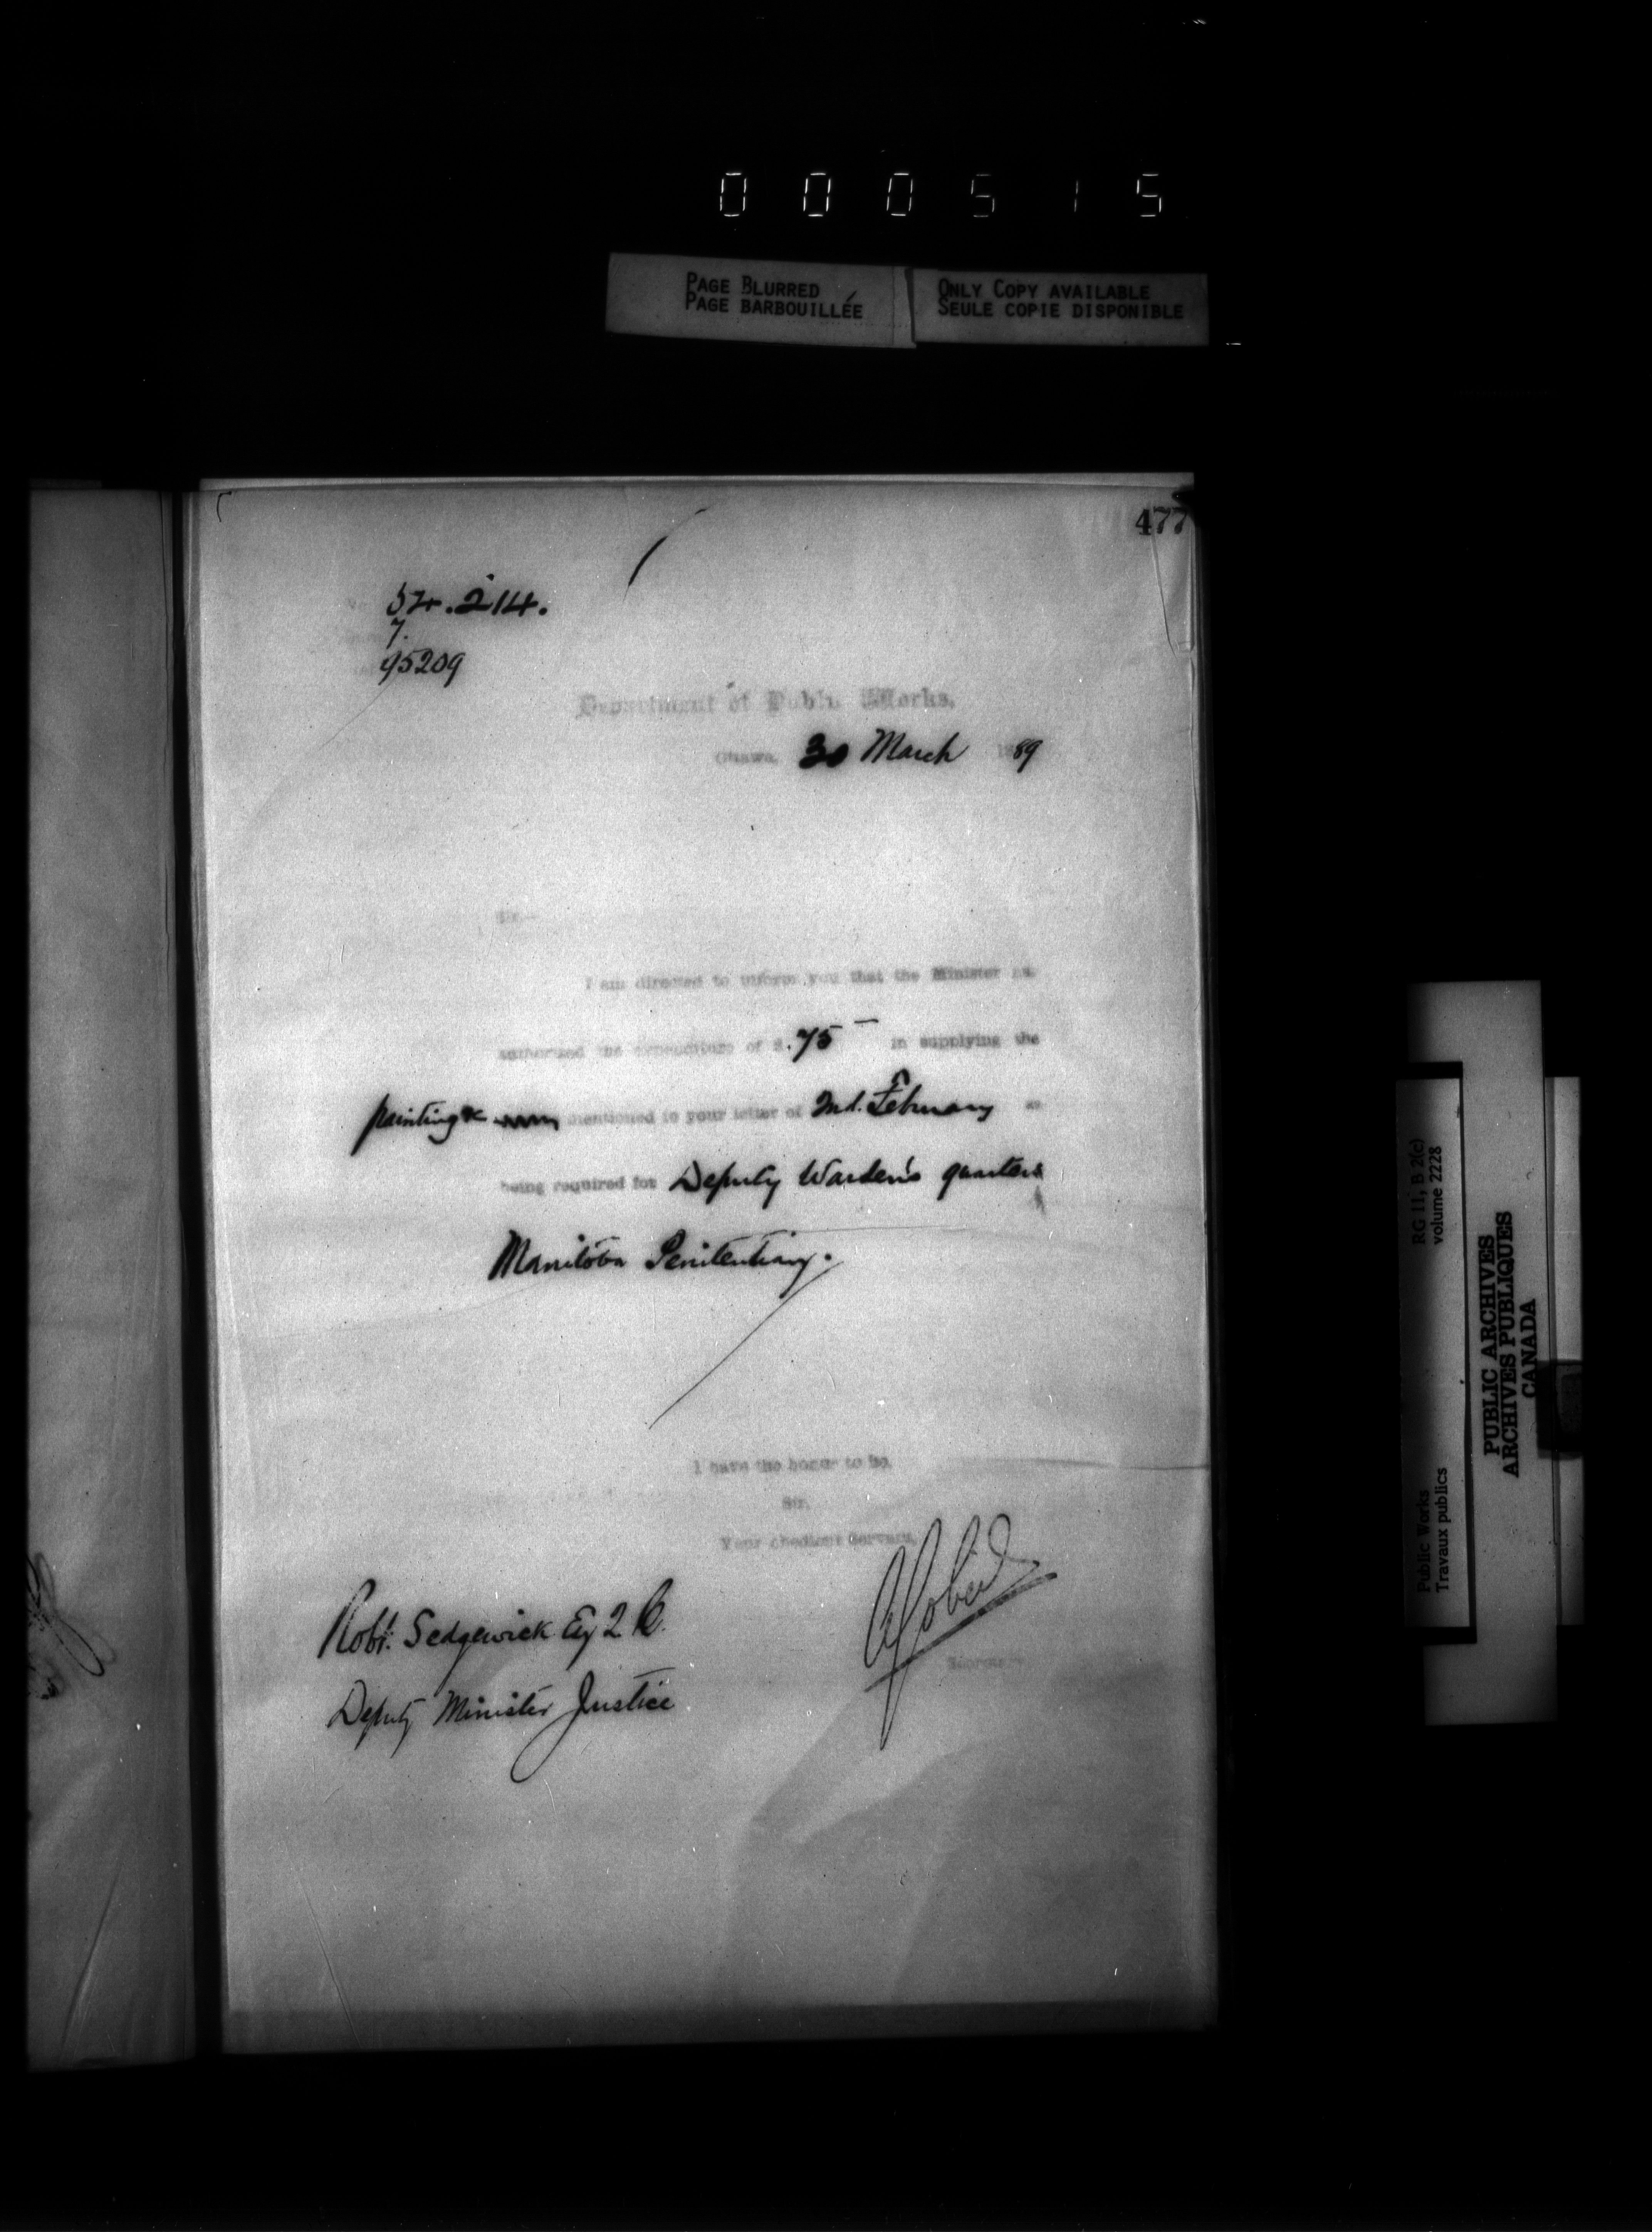 0 0 0 5 1 5
PAGE BLURRED
PAGE BARBOUILLÉE
ONLY COPY AVAILABLE
SEULE COPIE DISPONIBLE
477
.214.
7.
95209
Department of Public Works.
Ottawa, 30 March 1889
Sir,—
I am directed to inform you that the Minister has
authorized the expenditure of $.75— in supplying the
painting &c mentioned in your letter of 2nd. February as
being required for Deputy Warden's quarters
Manitoba Penitentiary.
I have the honor to be,
Sir,
Your obedient Servant,
A Gobeil
Secretary.
Robt. Sedgewick Esq Q C.
Deputy Minister Justice
RG 11, B 2(c)
volume 2228
Public Works
Travaux publics
PUBLIC ARCHIVES
ARCHIVES PUBLIQUES
CANADA